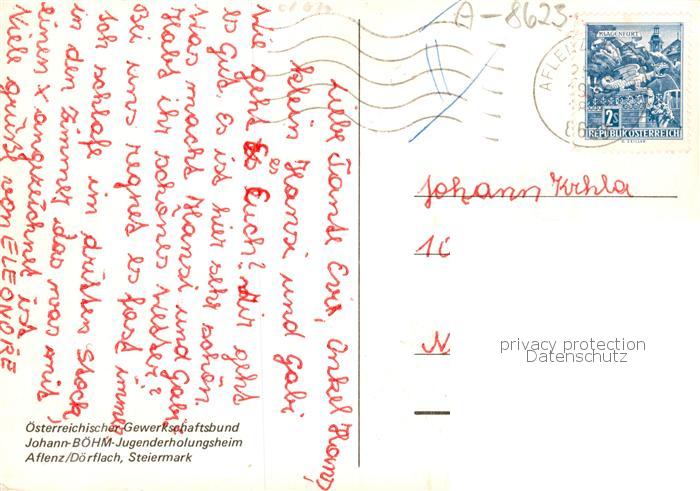 A-8623
KLAGENFURT
AFLENZ
2S
REPUBLIK ÖSTERREICH
Liebe Tante Evi, Onkel Hans,
klein Hansi und Gabi
Wie geht es Euch? Mir geht
es gut. Es ist hier sehr schön.
Was macht Hansi und Gabi?
Habt ihr schönes Wetter?
Bei uns regnet es fast immer.
Ich schlafe im dritten Stock,
in den Zimmer das was mit
einen x angezeichnet ist.
Viele grüße von ELEONORE
Johann Krhla
1
N
privacy protection
Datenschutz
Österreichischer Gewerkschaftsbund
Johann-BÖHM-Jugenderholungsheim
Aflenz/Dörflach, Steiermark